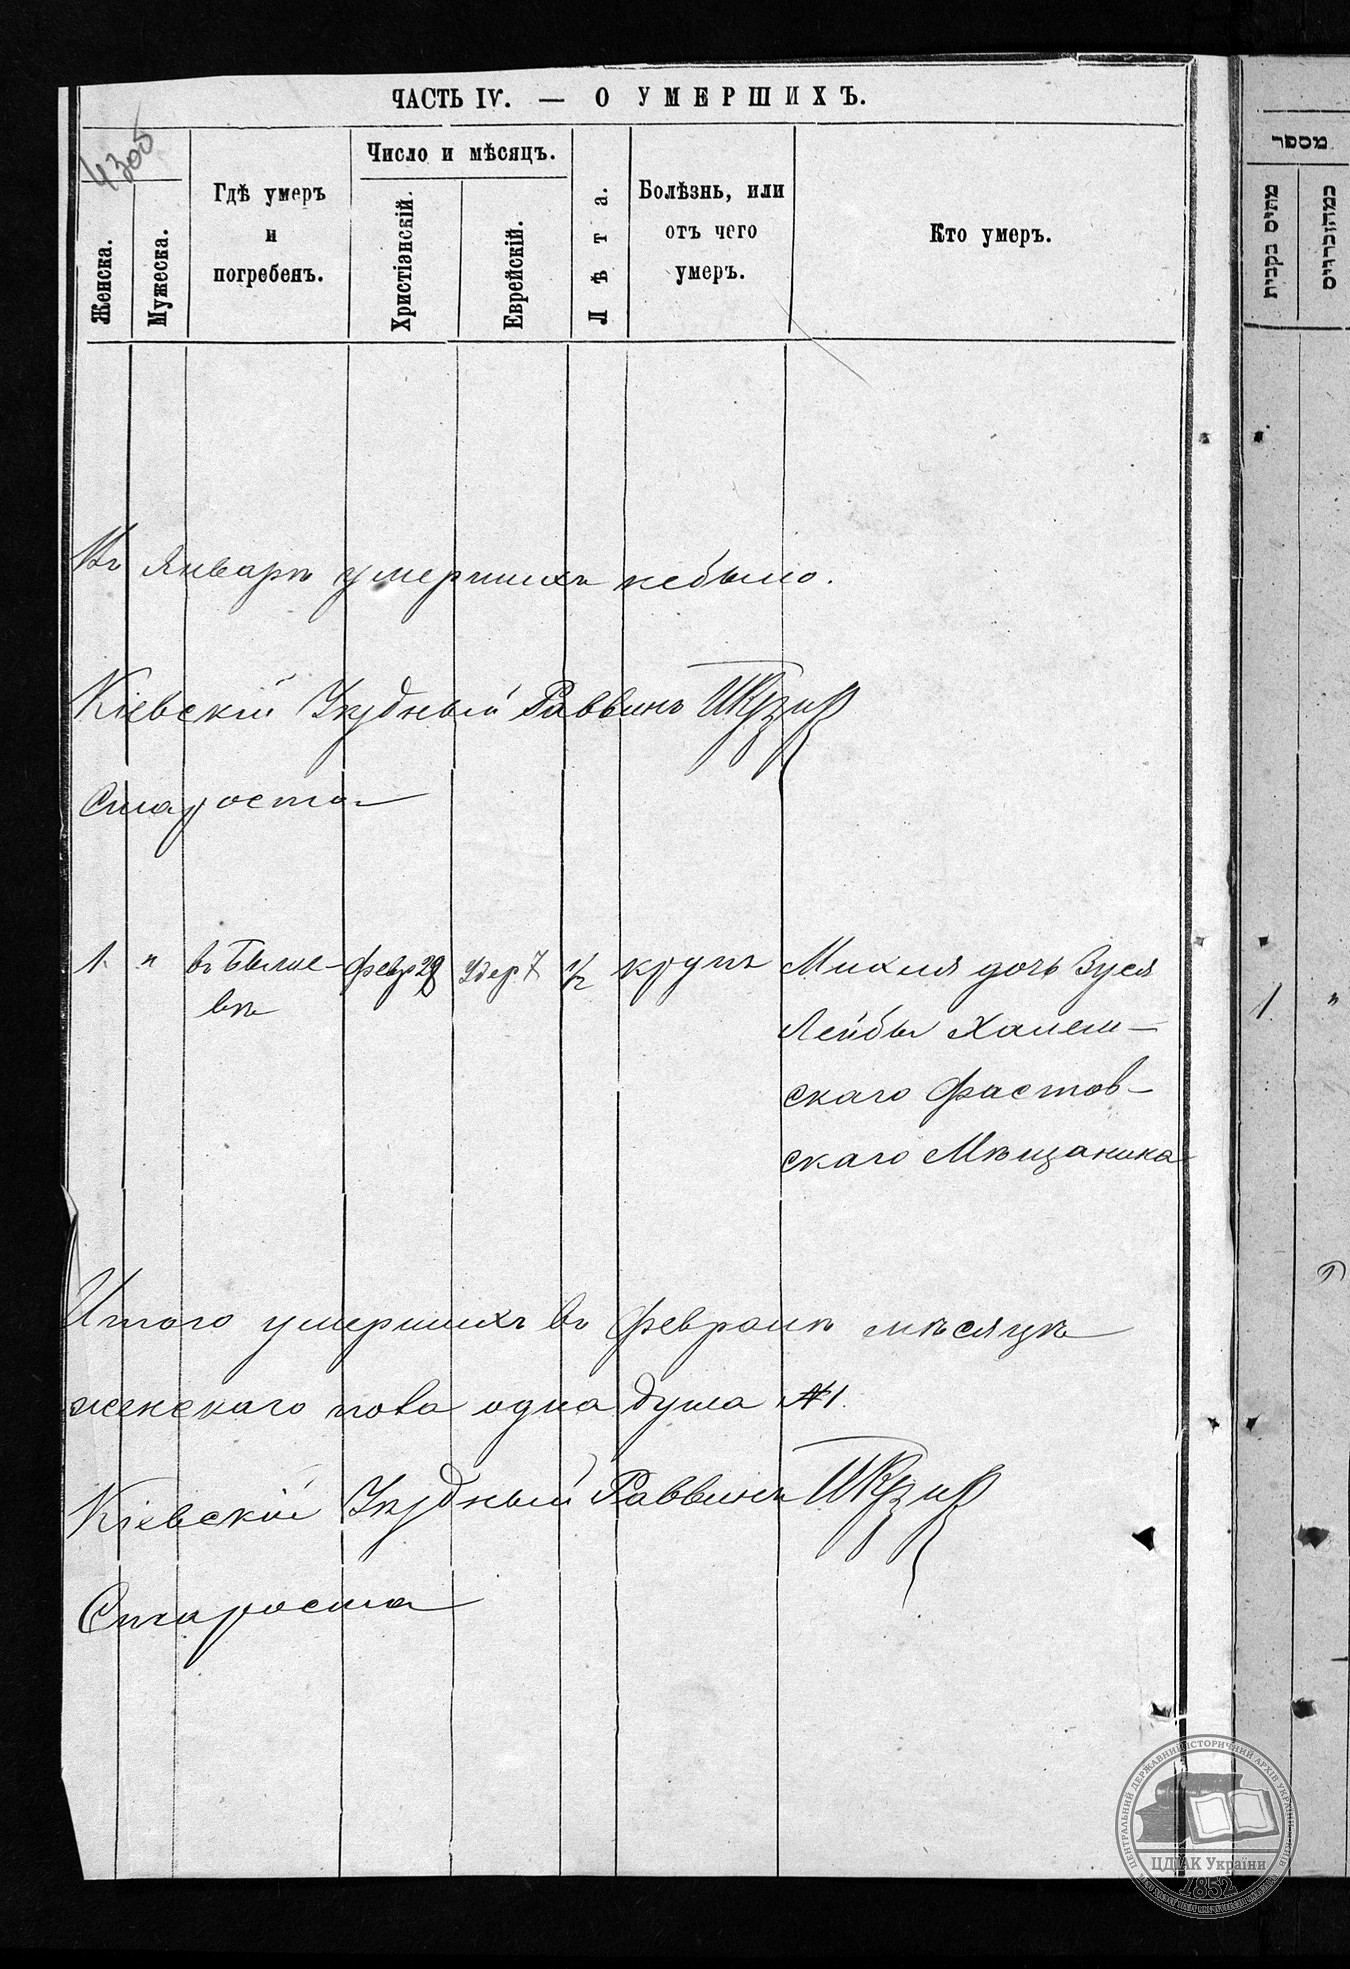 ЧАСТЬ IV. — О УМЕРШИХЪ.
4305
Женска.
Мужеска.
Гдѣ умеръ
и
погребенъ.
Число и мѣсяцъ.
Христіанскій.
Еврейскій.
Лѣта.
Болѣзнь, или
отъ чего
умеръ.
Кто умеръ.
מספר
Въ Январѣ умершихъ небыло.
Кіевскій Уѣздный Раввинъ
Староста
1 " въ Быше- Февр 28 Удер 7 1/2 крупъ Михля дочь Зуся
вѣ Лейбы Халем-
скаго Фастов-
скаго Мѣщанина
1 "
Итого умершихъ въ Февралѣ мѣсяцѣ
женскаго пола одна душа №1.
Кіевскій Уѣздный Раввинъ
Староста
ЦЕНТРАЛЬНИЙ ДЕРЖАВНИЙ ІСТОРИЧНИЙ АРХІВ УКРАЇНИ
ЦДІАК України
1852